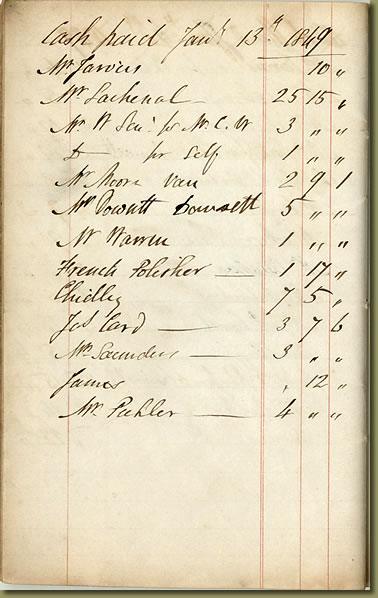 Cash paid Jany 13th 1849
Mr Jarvis 10 "
Mr Lachenal 25 15 "
Mr W Senr for Mr C. W 3 " "
Do for Self 1 " "
Mr Moore Van 2 9 1
Mr Dowsett Dowsett 5 " "
Mr Warren 1 " "
French Polisher — 1 17 "
Chidley 7 5 "
Jos Card — 3 7 6
Mr Saunders — 3 " "
James " 12 "
Mr Pichler — 4 " "